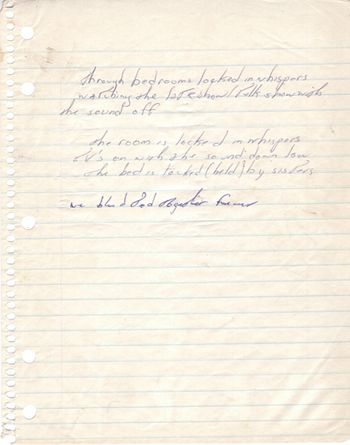 through bedrooms locked in whispers
watching the late show/talk show with
the sound off
the room is locked in whispers
TV's on with the sound down low
the bed is locked (held) by sisters
we together forever